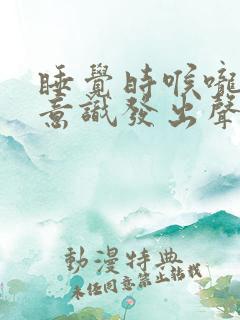 睡覺時喉嚨
意識發出聲
動漫特典
未經同意禁止轉載